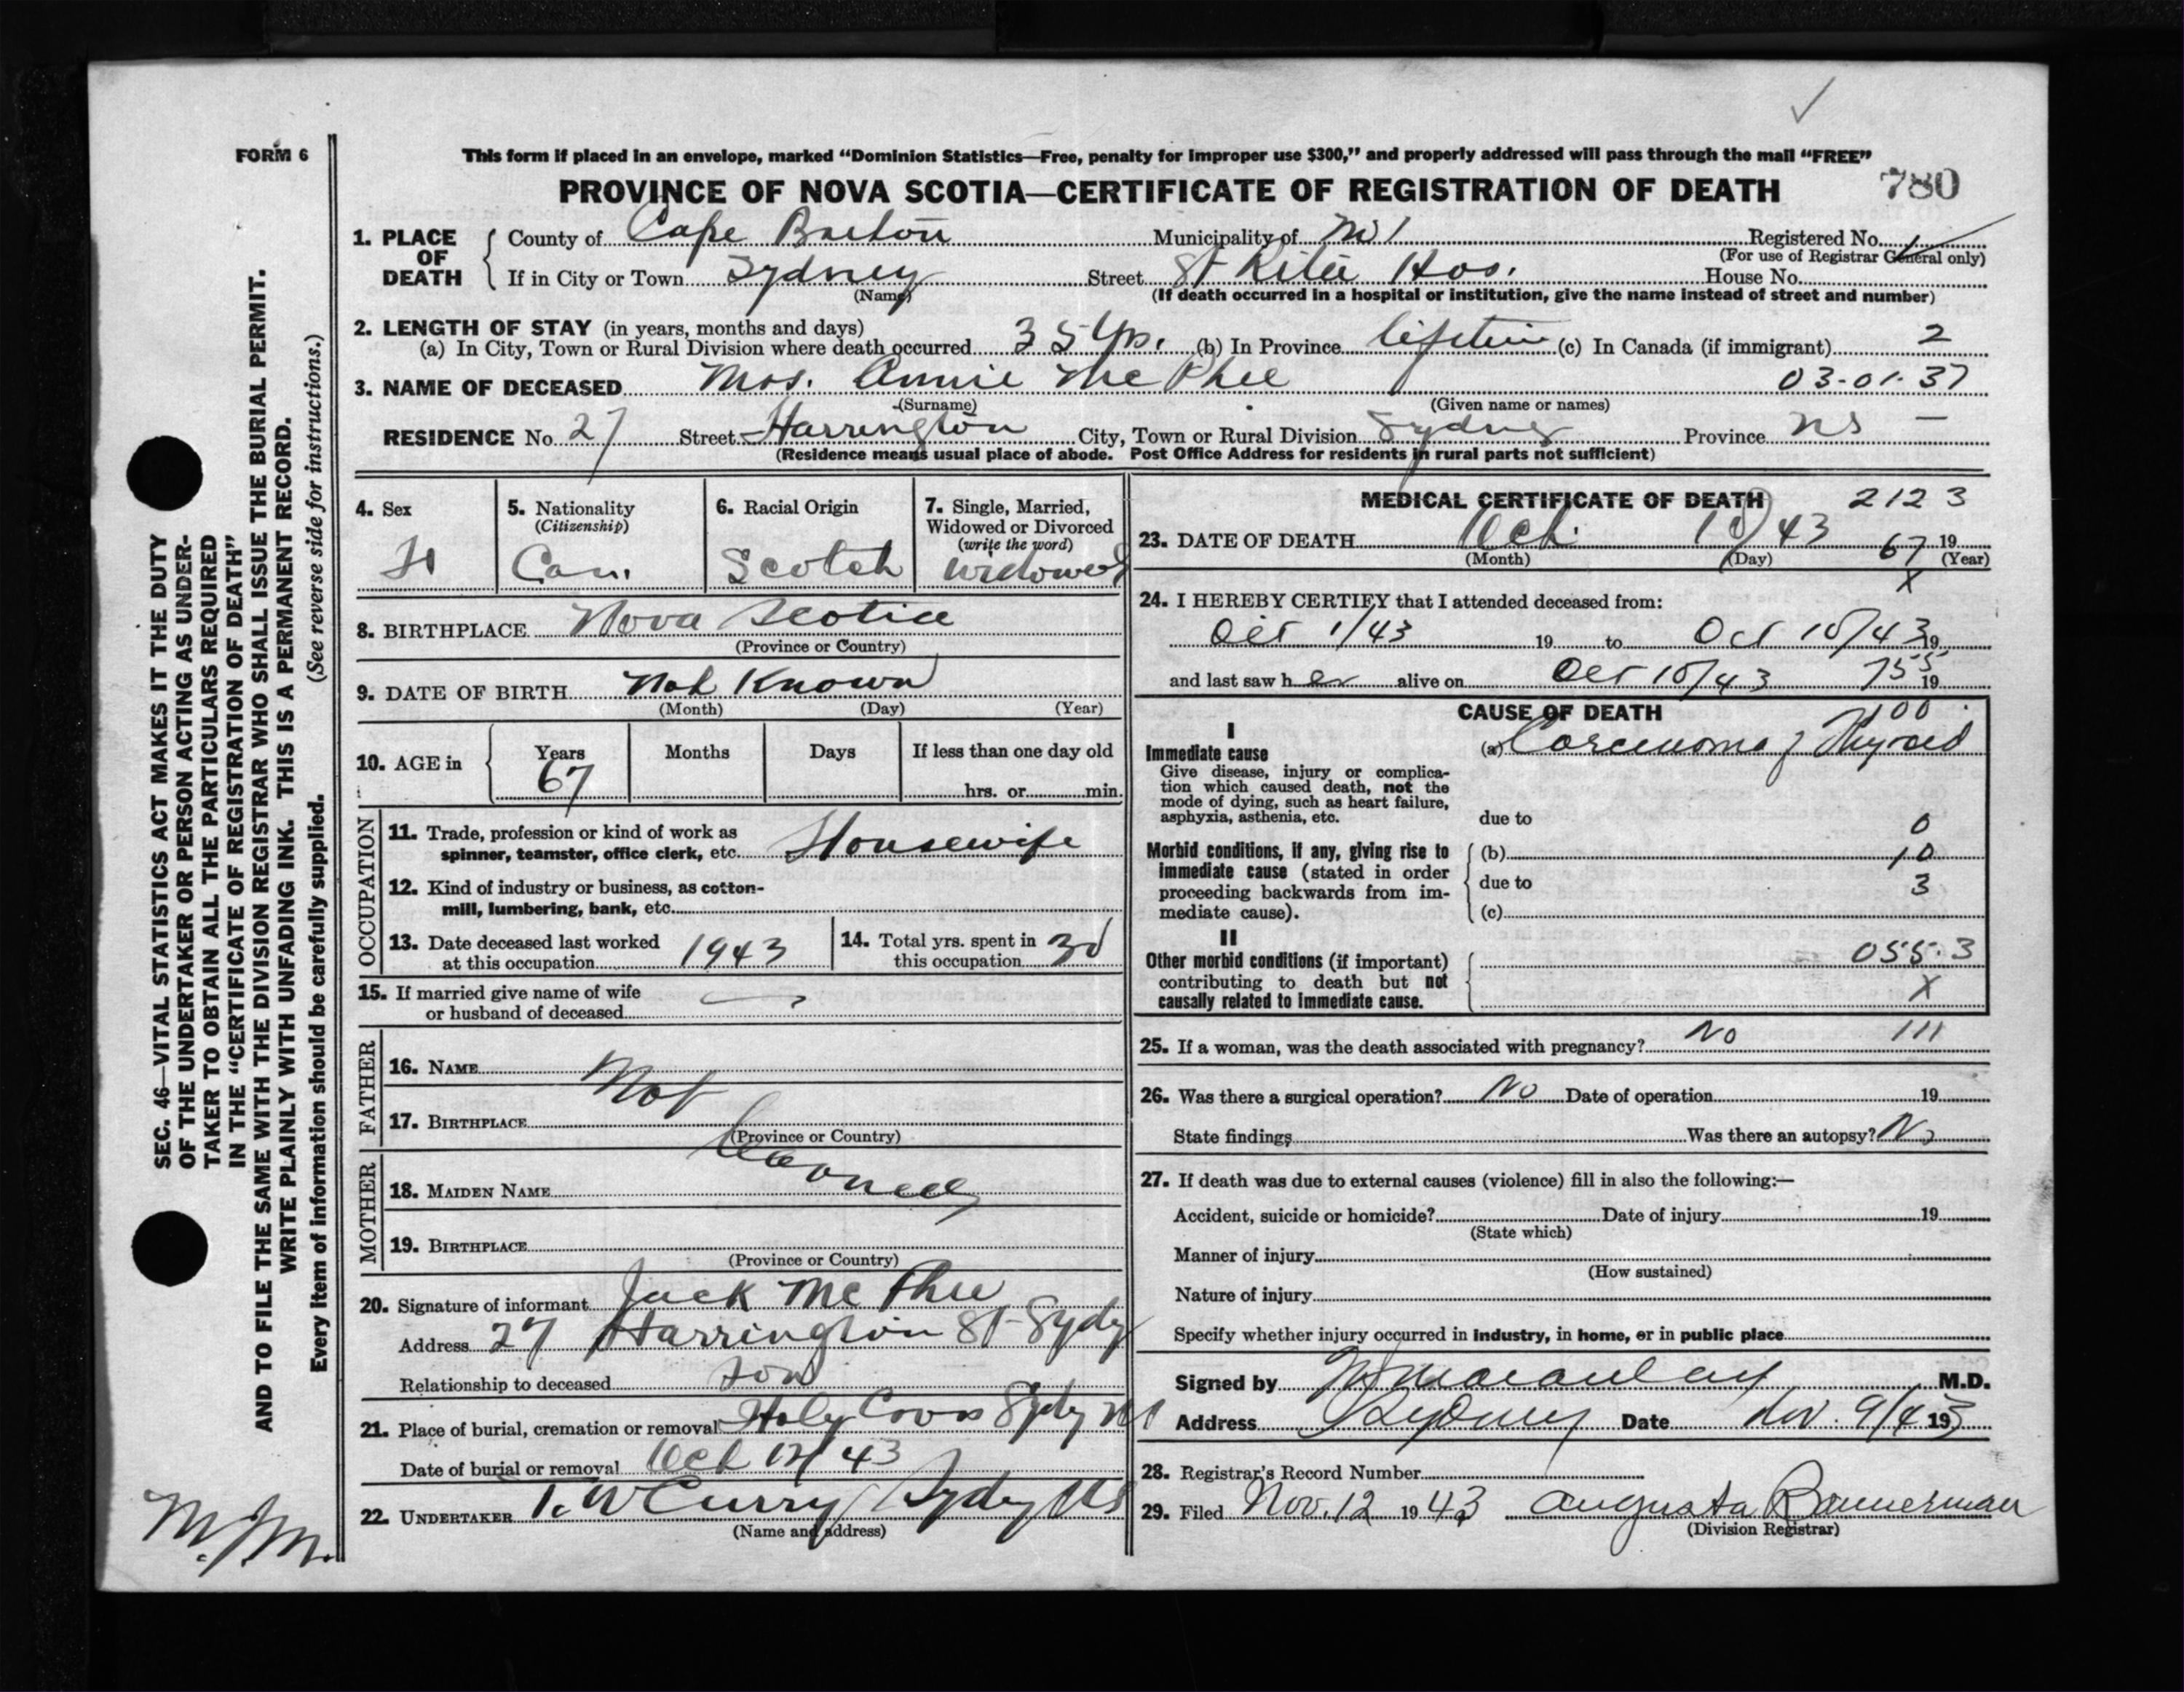 FORM 6
This form if placed in an envelope, marked "Dominion Statistics—Free, penalty for improper use $300," and properly addressed will pass through the mail "FREE"
PROVINCE OF NOVA SCOTIA—CERTIFICATE OF REGISTRATION OF DEATH 780
1. PLACE OF DEATH County of Cape Breton Municipality of Registered No.
(For use of Registrar General only)
If in City or Town Sydney Street St Rita Hos. House No.
(Name) (If death occurred in a hospital or institution, give the name instead of street and number)
2. LENGTH OF STAY (in years, months and days)
(a) In City, Town or Rural Division where death occurred 35 Yrs. (b) In Province lifetime (c) In Canada (if immigrant) 2
3. NAME OF DECEASED Mrs. Annie Mc Phee 03-01-37
(Surname) (Given name or names)
RESIDENCE No. 27 Street Harrington City, Town or Rural Division Sydney Province NS —
(Residence means usual place of abode. Post Office Address for residents in rural parts not sufficient)
4. Sex
5. Nationality (Citizenship) Can.
6. Racial Origin Scotch
7. Single, Married, Widowed or Divorced (write the word) Widowed
8. BIRTHPLACE Nova Scotia
(Province or Country)
9. DATE OF BIRTH Not Known
(Month) (Day) (Year)
10. AGE in Years 67 Months Days If less than one day old
hrs. or min.
OCCUPATION
11. Trade, profession or kind of work as
spinner, teamster, office clerk, etc. Housewife
12. Kind of industry or business, as cotton-
mill, lumbering, bank, etc.
13. Date deceased last worked
at this occupation 1943
14. Total yrs. spent in
this occupation 30
15. If married give name of wife
or husband of deceased
FATHER
16. NAME Not
17. BIRTHPLACE
(Province or Country)
MOTHER
18. MAIDEN NAME
19. BIRTHPLACE
(Province or Country)
20. Signature of informant Jack Mc Phee
Address 27 Harrington St Sydy
Relationship to deceased Son
21. Place of burial, cremation or removal Holy Cross Sydy NS
Date of burial or removal Oct 12/43
22. UNDERTAKER T. W Curry Sydy NS
(Name and address)
MEDICAL CERTIFICATE OF DEATH 2123
23. DATE OF DEATH Oct. 10/43 67 19
(Month) (Day) (Year)
X
24. I HEREBY CERTIFY that I attended deceased from:
Oct 1/43 19 to Oct 10/43 19
and last saw h er alive on Oct 10/43 755 19
CAUSE OF DEATH 100
I
Immediate cause (a) Carcinoma of Thyroid
Give disease, injury or complica-
tion which caused death, not the
mode of dying, such as heart failure,
asphyxia, asthenia, etc. due to 0
Morbid conditions, if any, giving rise to
immediate cause (stated in order
proceeding backwards from im-
mediate cause).
(b) 10
due to 3
(c)
II
Other morbid conditions (if important)
contributing to death but not
causally related to immediate cause.
055.3
X
25. If a woman, was the death associated with pregnancy? No 111
26. Was there a surgical operation? No Date of operation 19
State findings Was there an autopsy? No
27. If death was due to external causes (violence) fill in also the following:—
Accident, suicide or homicide? Date of injury 19
(State which)
Manner of injury
(How sustained)
Nature of injury
Specify whether injury occurred in industry, in home, or in public place
Signed by Macaulay M.D.
Address Sydney Date Nov. 9/43 19
28. Registrar's Record Number
29. Filed Nov. 12 1943 Augusta Bannerman
(Division Registrar)
SEC. 46—VITAL STATISTICS ACT MAKES IT THE DUTY
OF THE UNDERTAKER OR PERSON ACTING AS UNDER-
TAKER TO OBTAIN ALL THE PARTICULARS REQUIRED
IN THE "CERTIFICATE OF REGISTRATION OF DEATH"
AND TO FILE THE SAME WITH THE DIVISION REGISTRAR WHO SHALL ISSUE THE BURIAL PERMIT.
WRITE PLAINLY WITH UNFADING INK. THIS IS A PERMANENT RECORD.
Every item of information should be carefully supplied. (See reverse side for instructions.)
M.J.M.